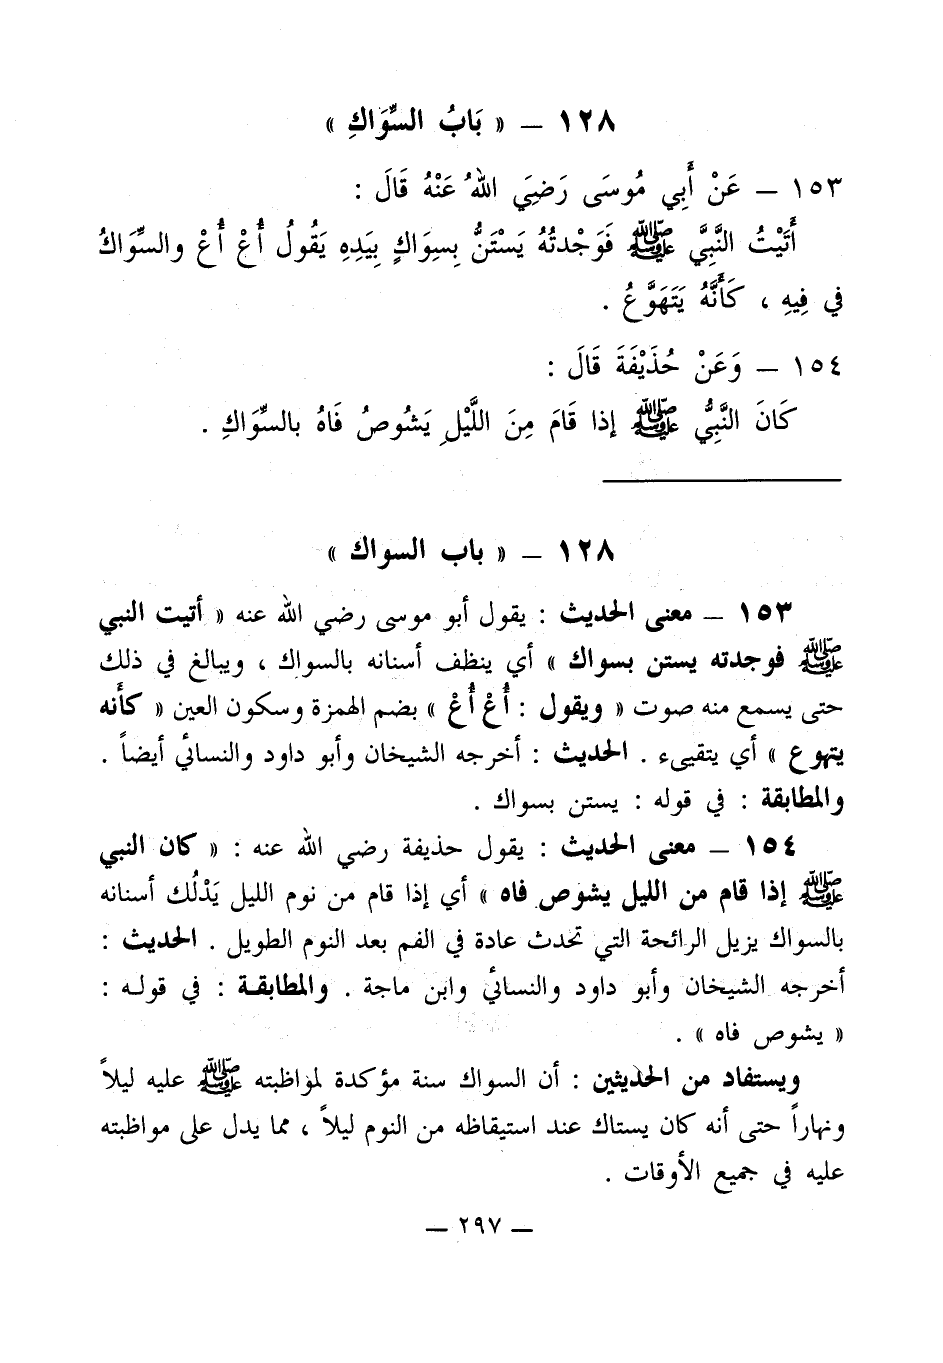 ١٢٨ – « بَابُ السِّوَاكِ »
١٥٣ – عَنْ أَبِي مُوسَى رَضِيَ اللهُ عَنْهُ قَالَ :
أَتَيْتُ النَّبِيَّ ﷺ فَوَجْدتُهُ يَسْتَنُّ بِسِوَاكٍ بِيَدِهِ يَقُولُ أُعْ أُعْ والسِّوَاكُ
في فِيهِ ، كَأَنَّهُ يَتَهَوَّعُ .
١٥٤ – وَعَنْ حُذَيْفَةَ قَالَ :
كَانَ النَّبِيُّ ﷺ إذا قَامَ مِنَ اللَّيْلِ يَشُوصُ فَاهُ بالسِّوَاكِ .
١٢٨ – « باب السواك »
١٥٣ – معنى الحديث : يقول أبو موسى رضي الله عنه « أتيت النبي
ﷺ فوجدته يستن بسواك » أي ينظف أسنانه بالسواك ، ويبالغ في ذلك
حتى يسمع منه صوت « ويقول : أُعْ أُعْ » بضم الهمزة وسكون العين « كأنه
يتهوع » أي يتقيىء . الحديث : أخرجه الشيخان وأبو داود والنسائي أيضاً .
والمطابقة : في قوله : يستن بسواك .
١٥٤ – معنى الحديث : يقول حذيفة رضي الله عنه : « كان النبي
ﷺ إذا قام من الليل يشوص فاه » أي إذا قام من نوم الليل يَدْلُك أسنانه
بالسواك يزيل الرائحة التي تحدث عادة في الفم بعد النوم الطويل . الحديث :
أخرجه الشيخان وأبو داود والنسائي وابن ماجة . والمطابقة : في قوله :
« يشوص فاه » .
ويستفاد من الحديثين : أن السواك سنة مؤكدة لمواظبته ﷺ عليه ليلاً
ونهاراً حتى أنه كان يستاك عند استيقاظه من النوم ليلاً ، مما يدل على مواظبته
عليه في جميع الأوقات .
– ٢٩٧ –